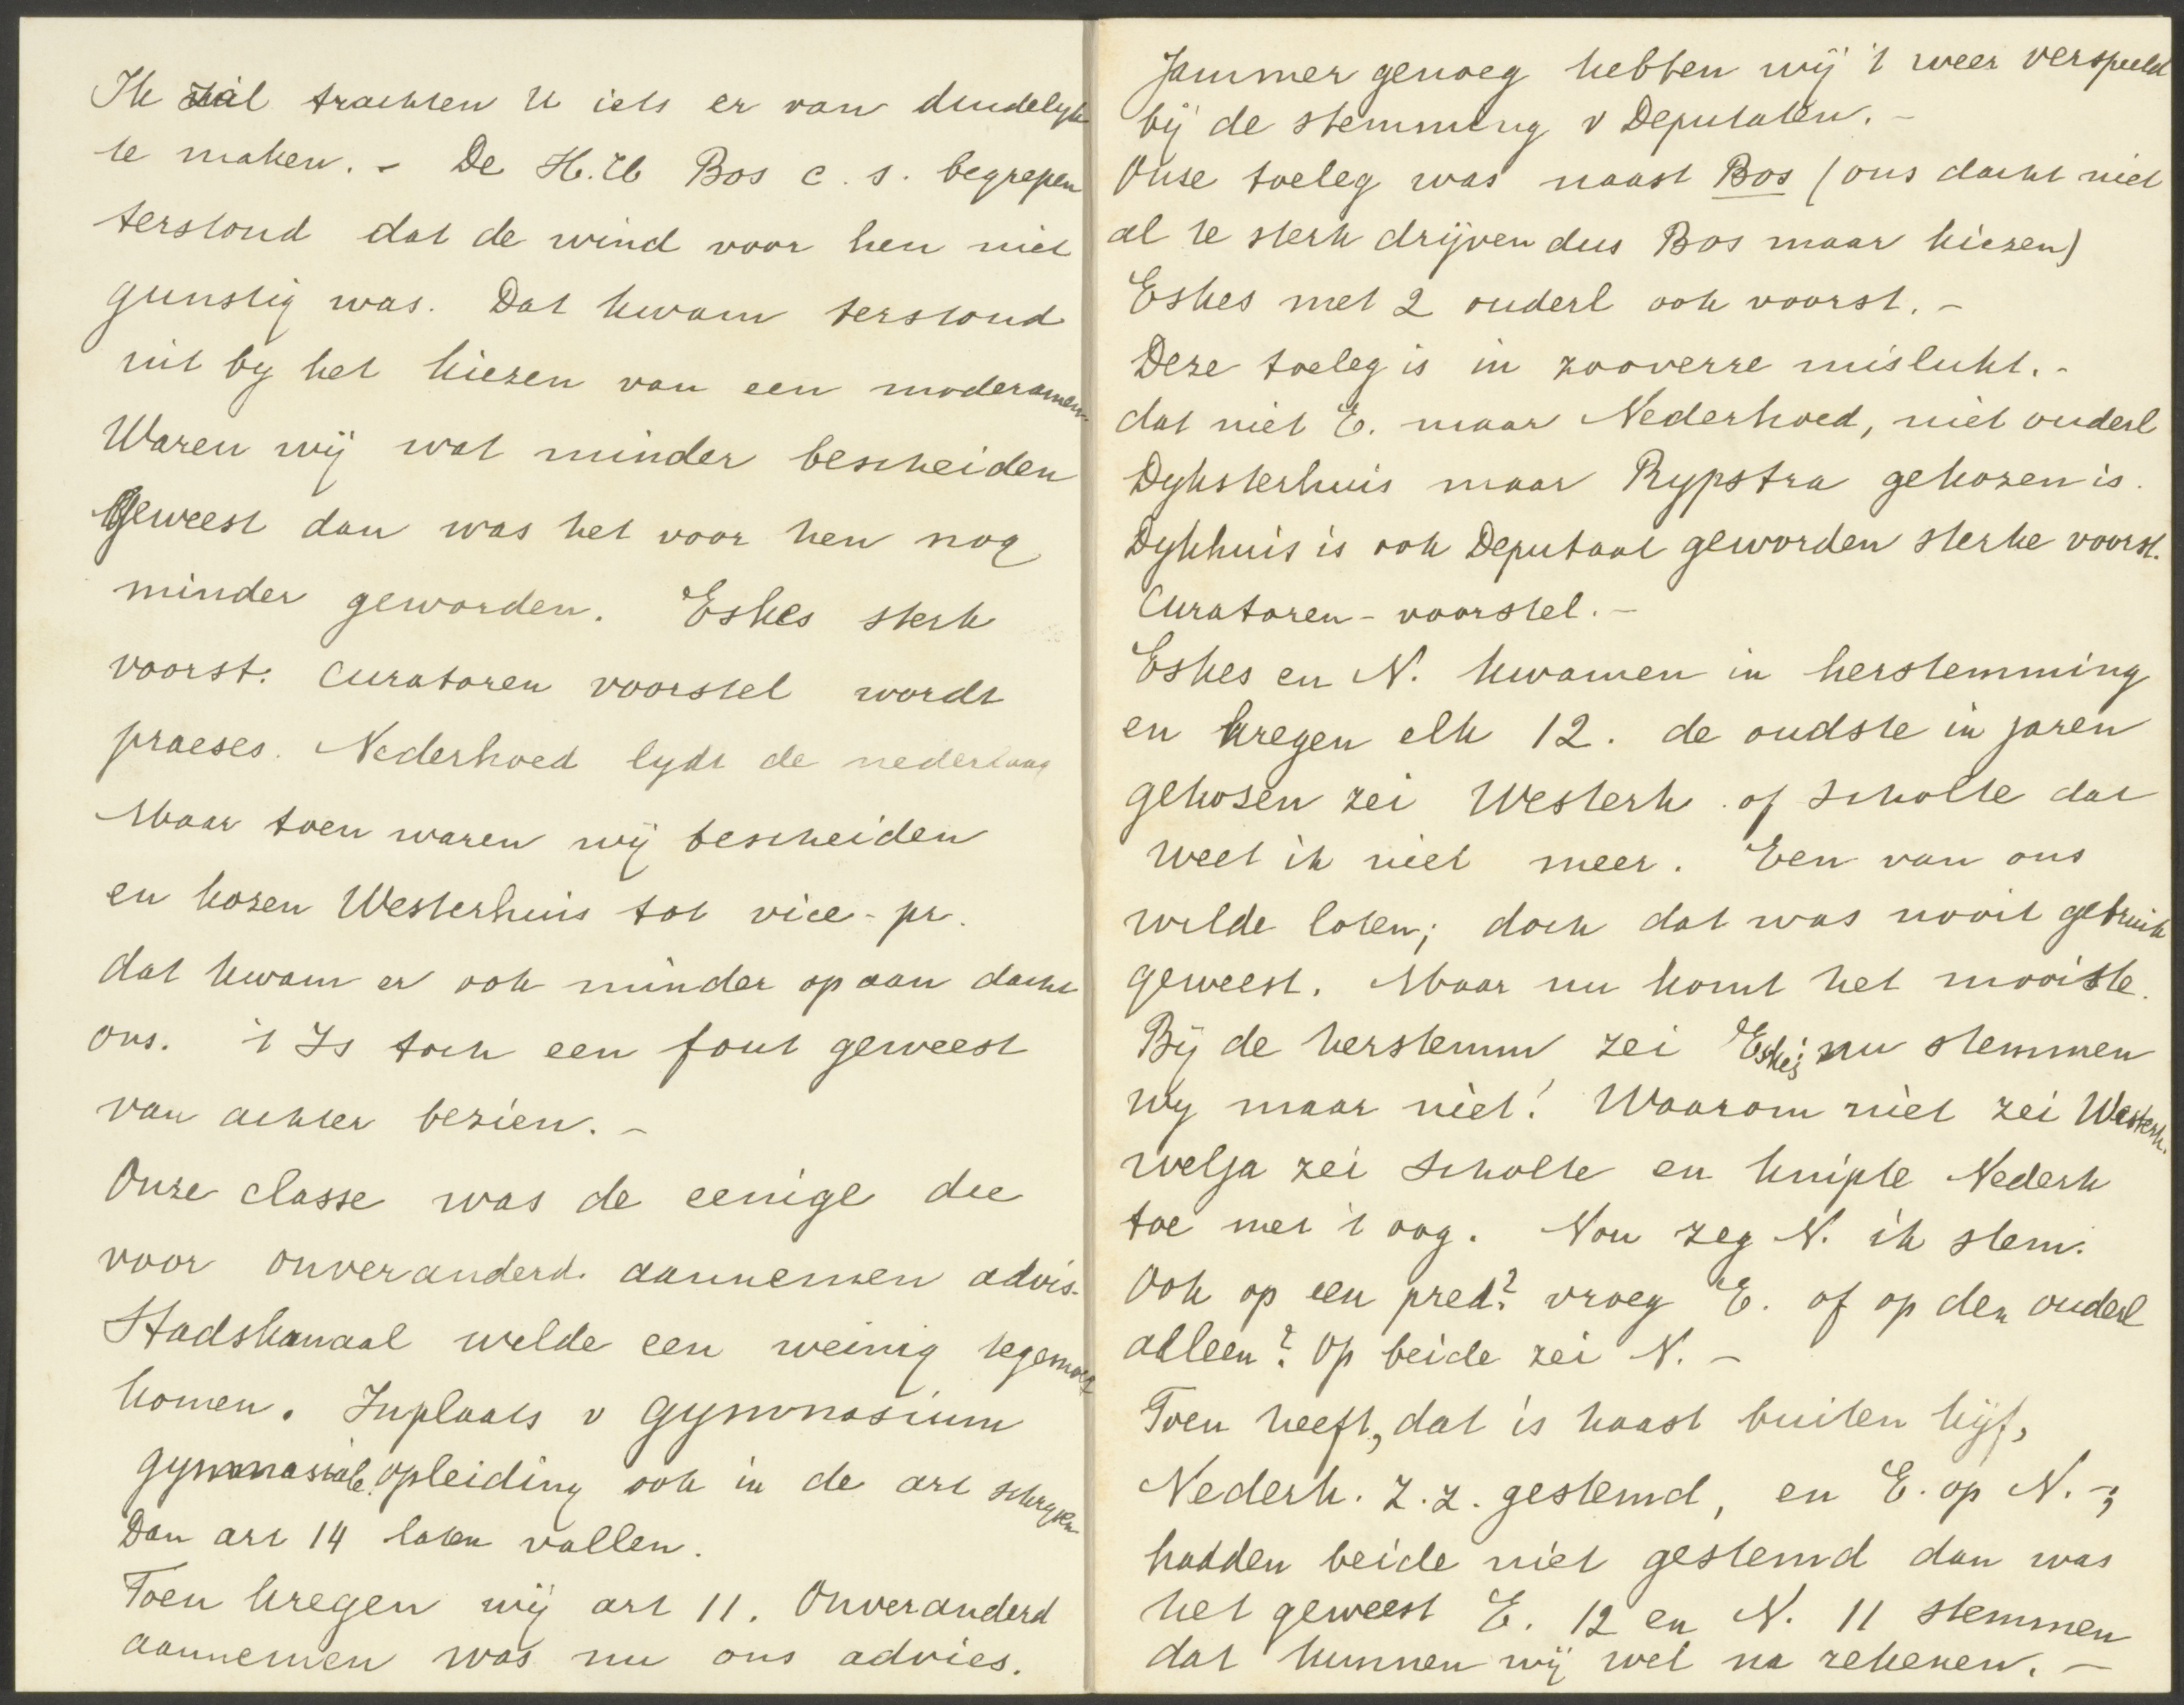 Ik zal trachten U iets er van duidelyk
te maken. - De H.H. Bos c.s. begrepen
terstond dat de wind voor hen niet
gunstig was. Dat kwam terstond
uit by het kiezen van een moderamen.
Waren wij wat minder bescheiden
geweest dan was het voor hen nog
minder geworden. Eskes sterk
voorst. Curatoren voorstel wordt
praeses. Nederhoed lydt de nederlaag
Maar toen waren wij bescheiden
en kozen Westerhuis tot vice-pr.
dat kwam er ook minder op aan dacht
ons. 't Is toch een fout geweest
van achter bezien. -
Onze classe was de eenige die
voor onveranderd. aannemen advis.
Stadskanaal wilde een weinig tegemoet
komen. Inplaats v gymnasium
gymnasiale opleiding ook in de art schryven
Dan art 14 laten vallen.
Toen kregen wij art 11. Onveranderd
aannemen was nu ons advies.
Jammer genoeg hebben wij 't weer verspeeld
bij de stemming v Deputaten. -
Onse toeleg was naast Bos (ons dacht niet
al te sterk drijven dus Bos maar kiezen)
Eskes met 2 ouderl ook voorst. -
Deze toeleg is in zooverre mislukt. -
dat niet E. maar Nederhoed, niet ouderl
Dyksterhuis maar Rypstra gekozen is.
Dykhuis is ook Deputaat geworden sterke voorst.
Curatoren-voorstel. -
Eskes en N. kwamen in herstemming
en kregen elk 12. de oudste in jaren
gekozen zei Westerh. of Scholte dat
weet ik niet meer. Een van ons
wilde loten; doch dat was nooit gebruik
geweest. Maar nu komt het mooiste.
Bij de herstemm zei Eskes; nu stemmen
wy maar niet! Waarom niet zei Westerh.
welja zei Scholte en knipte Nederh
toe met 't oog. Nou zeg N. ik stem.
Ook op een pred? vroeg E. of op den ouderl
alleen? Op beide zei N. -
Toen heeft, dat is haast buiten kijf,
Nederh. z.z. gestemd, en E. op N. -;
hadden beide niet gestemd dan was
het geweest E. 12 en N. 11 stemmen
dat kunnen wij wel na rekenen. -